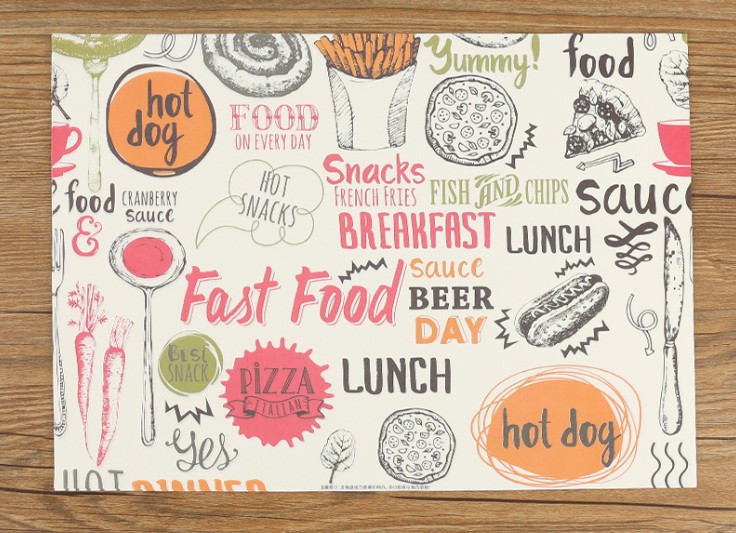 Yummy!
food
hot
dog
FOOD
ON EVERY DAY
HOT
SNACKS
Snacks
FRENCH FRIES
FISH AND CHIPS
sauce
food
&
CRANBERRY
sauce
BREAKFAST
LUNCH
Fast Food
sauce
BEER
DAY
BEST
SNACK
PIZZA
ITALIAN
LUNCH
yes
hot dog
HOT DINNER